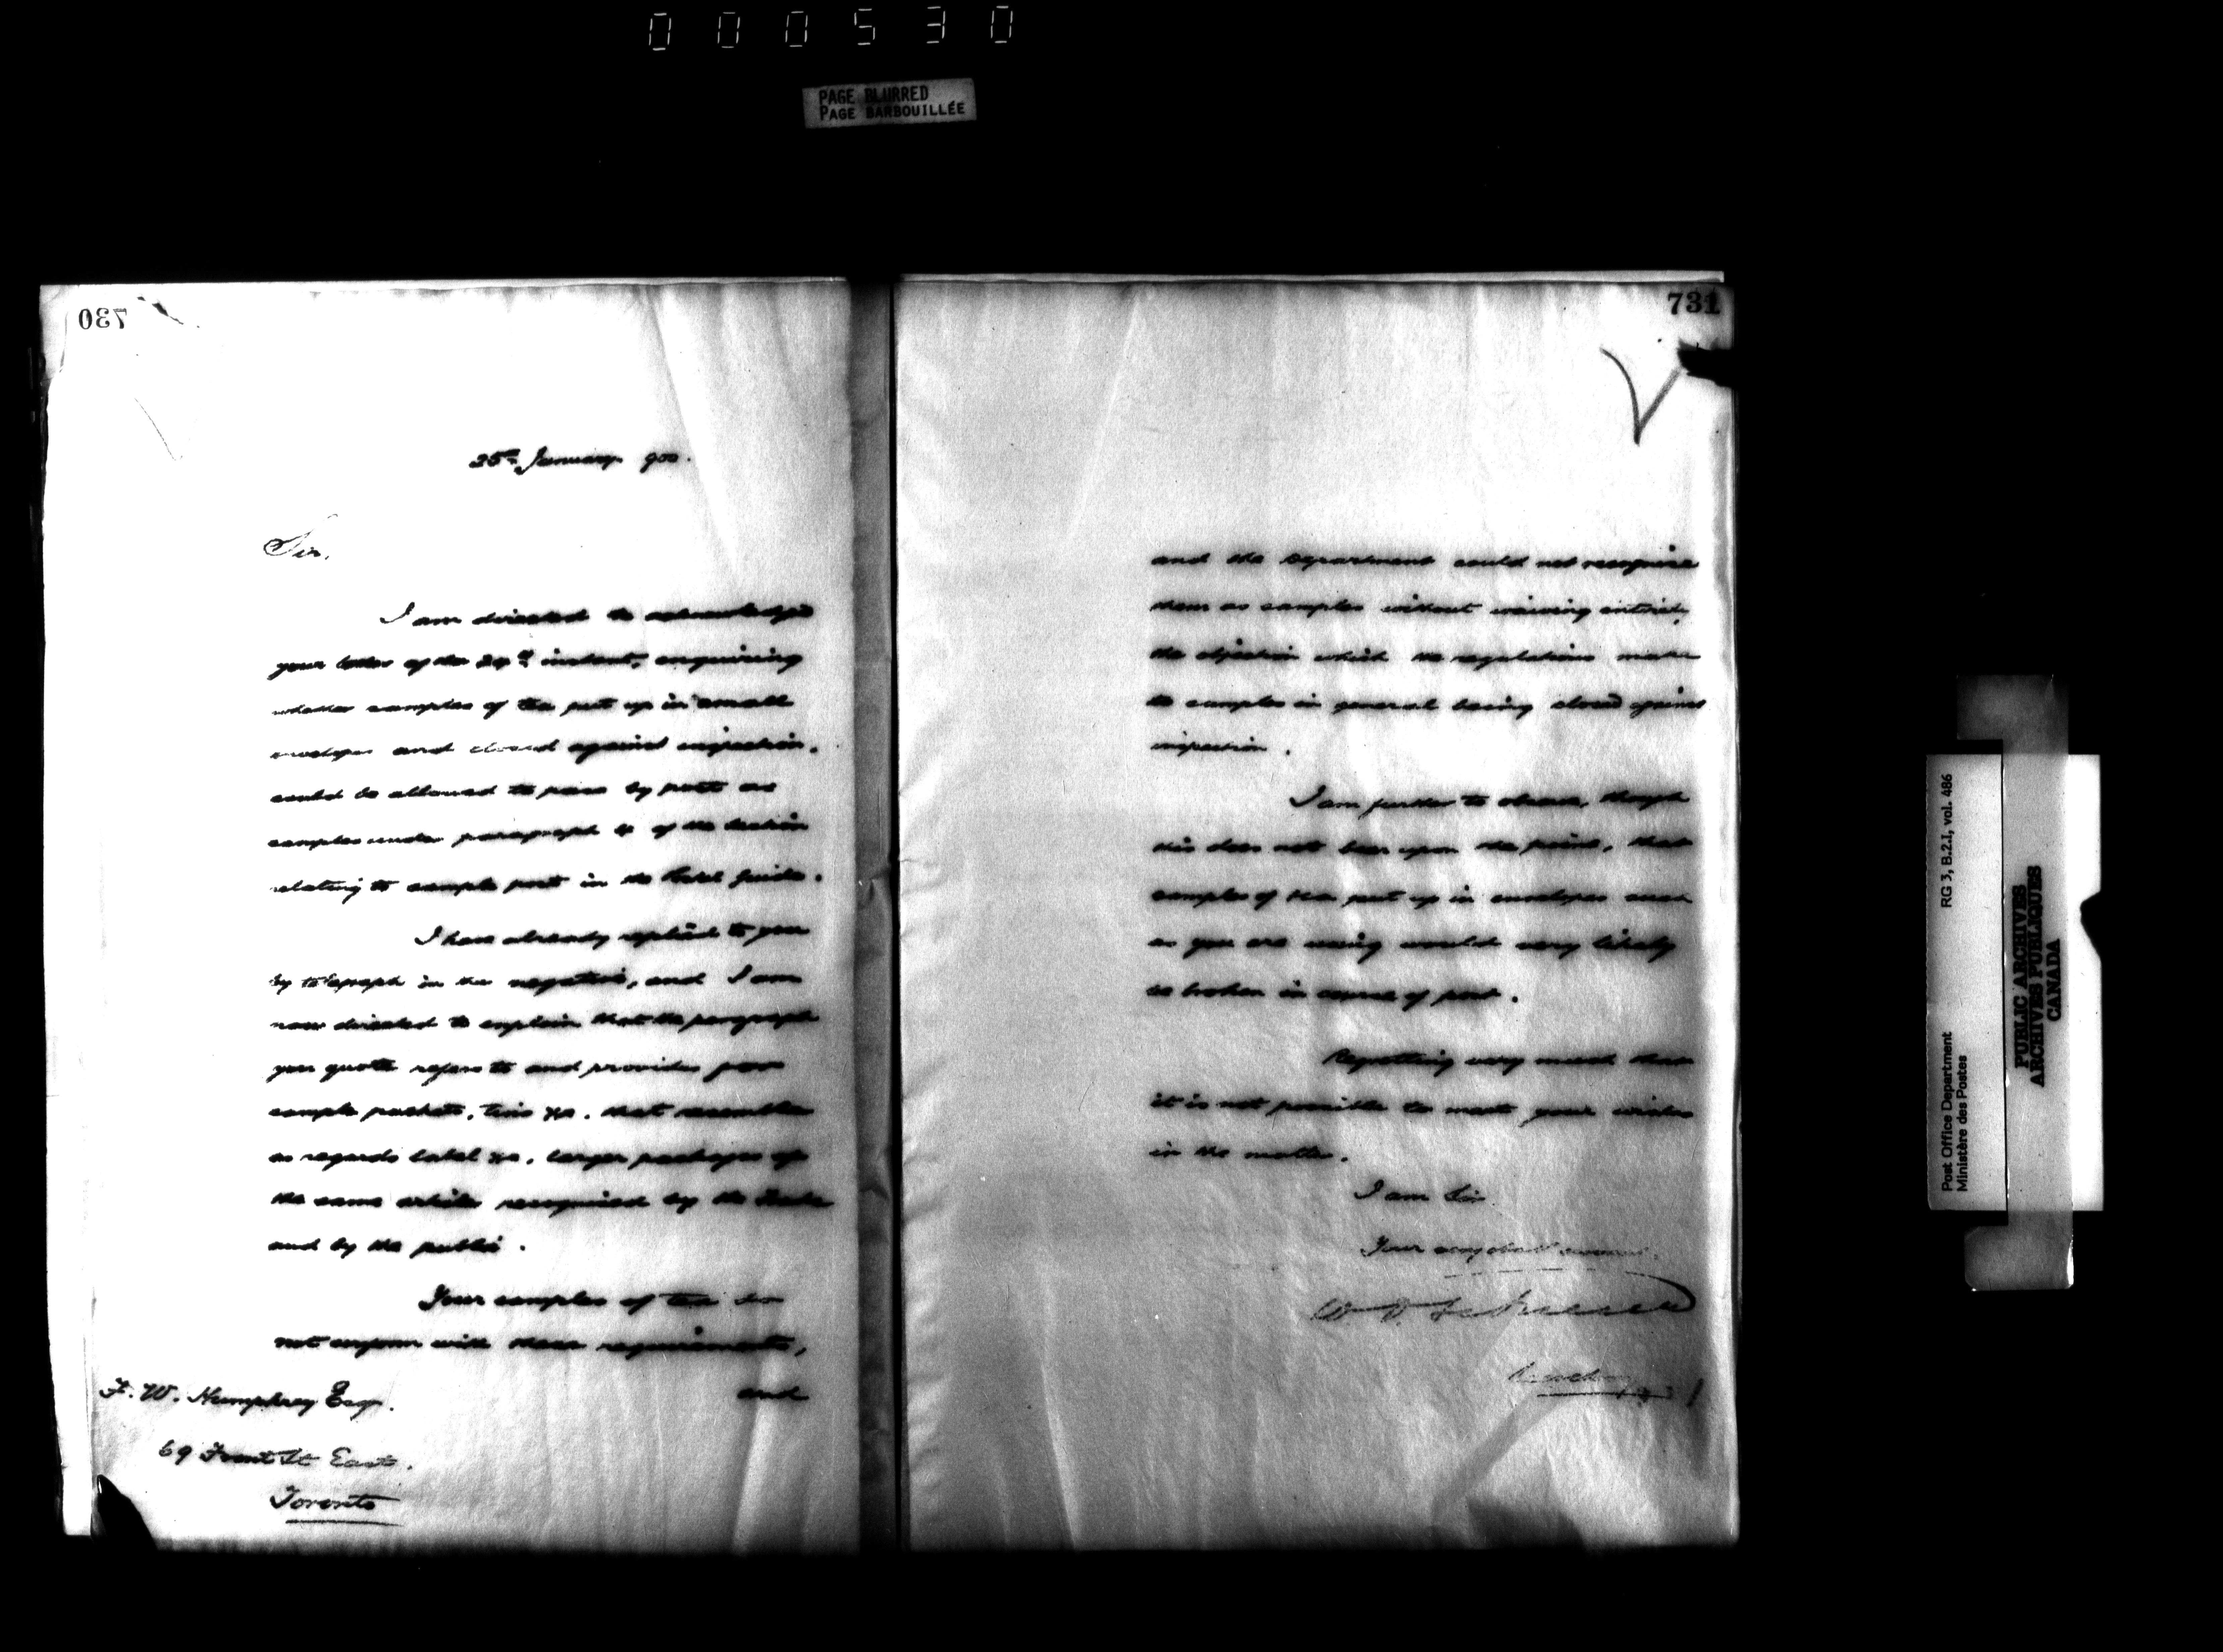 000530
PAGE BLURRED
PAGE BARBOUILLÉE
730
25th January 900.
Sir,
I am directed to acknowledge
your letter of the 24th instant, enquiring
whether samples of tea put up in small
envelopes and closed against inspection,
could be allowed to pass by post as
samples under paragraph 4 of the section
relating to sample post in the Postal Guide.
I have already replied to you
by telegraph in the negative, and I am
now directed to explain that the paragraph
you quote refers to and provides for
sample packets, tins &c. that resemble
as regards label &c. larger packages of
the same article recognised by the trade
and by the public.
Your samples of tea do
not conform with these requirements,
and
F. W. Humphrey Esq.
69 Front St East.
Toronto
731
and the Department could not recognize
them as samples without waiving entirely
the objection which the regulations make
to samples in general being closed against
inspection.
I am further to observe, though
this does not bear upon the point, that
samples of tea put up in envelopes such
as you are using would very likely
be broken in course of post.
Regretting very much that
it is not possible to meet your wishes
in the matter.
I am Sir
Your obedt servant.
W. D.
Post Office Department
Ministère des Postes
RG 3, B.2.I, vol. 486
PUBLIC ARCHIVES
ARCHIVES PUBLIQUES
CANADA